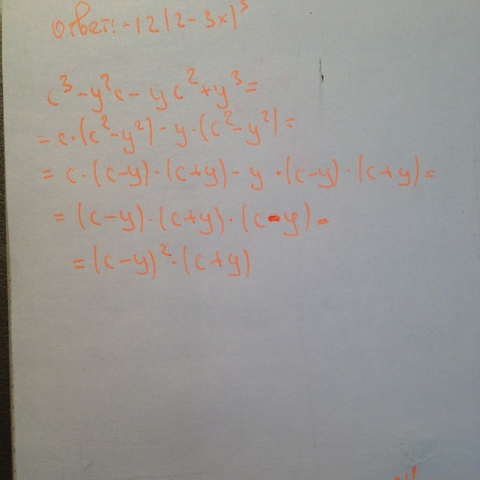 Ответ: -12(2-3x)³
c³-y²c-yc²+y³=
=c·(c²-y²)-y·(c²-y²)=
=c·(c-y)·(c+y)-y·(c-y)·(c+y)=
=(c-y)·(c+y)·(c-y)=
=(c-y)²·(c+y)